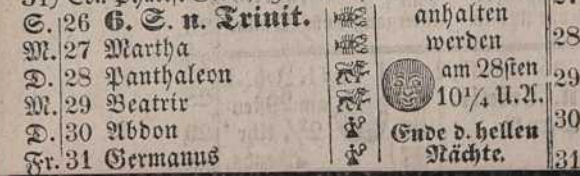 S. 26 6. S. n. Trinit. anhalten
M. 27 Martha werden 28
D. 28 Panthaleon am 28sten 29
M. 29 Beatrix 10¼ U.A.
D. 30 Abdon Ende d. hellen 30
Fr. 31 Germanus Nächte. 31